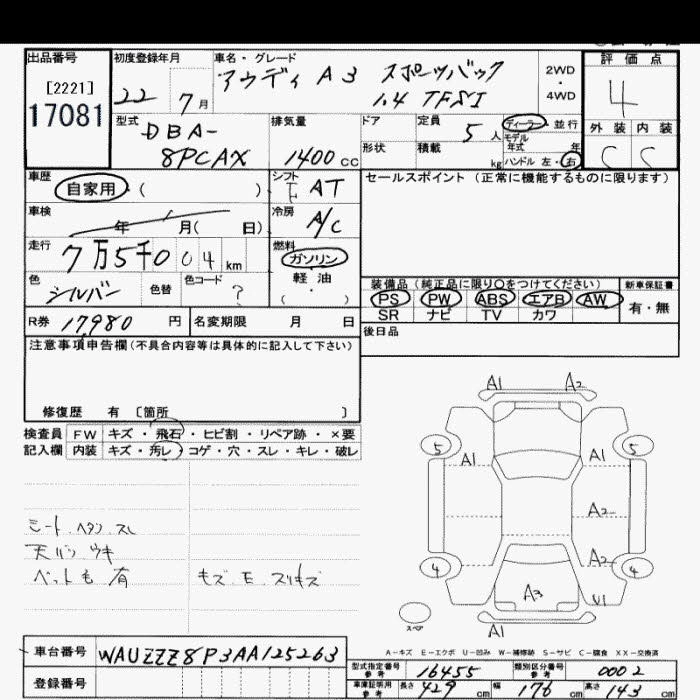 出品番号
[2221]
17081
初度登録年月
22 7月
車名・グレード
アウディ A3 スポーツバック
1.4 TFSI
2WD
・
4WD
評価点
4
外装 内装
C C
型式
DBA-
8PCAX
排気量
1400cc
ドア
形状
定員
5人
積載
kg
ディーラー・並行
モデル
年式 年
ハンドル 左・右
車歴
自家用 ( )
シフト
F AT
セールスポイント (正常に機能するものに限ります)
車検
年 月( 日)
冷房
A/C
走行
7万5千004km
燃料
ガソリン
・
軽油
・
( )
色
シルバー
色替
色コード
?
装備品 (純正品に限り○をつけてください)
PS PW ABS エアB AW
SR ナビ TV カワ
新車保証書
有・無
R券 17,980 円
名変期限 月 日
後日品
注意事項申告欄 (不具合内容等は具体的に記入して下さい)
修復歴 有 〔箇所 〕
検査員 FW キズ・飛石・ヒビ割・リペア跡・×要
記入欄 内装 キズ・汚レ・コゲ・穴・スレ・キレ・破レ
A1 A2
5 5
A1 A1
A2
A2
4 4
A3 U1
A1
スペア
シート ヘタシ スレ
天バリ ウキ
ペットも 有
キズ E スリキズ
A-キズ E-エクボ U-凹み W-補修跡 S-サビ C-腐食 XX-交換済
車台番号 WAUZZZ8P3AA125263
登録番号
型式指定番号
参考
16455
類別区分番号
参考
0002
車庫証明用
参考
長さ 429cm 幅 176cm 高さ 143cm